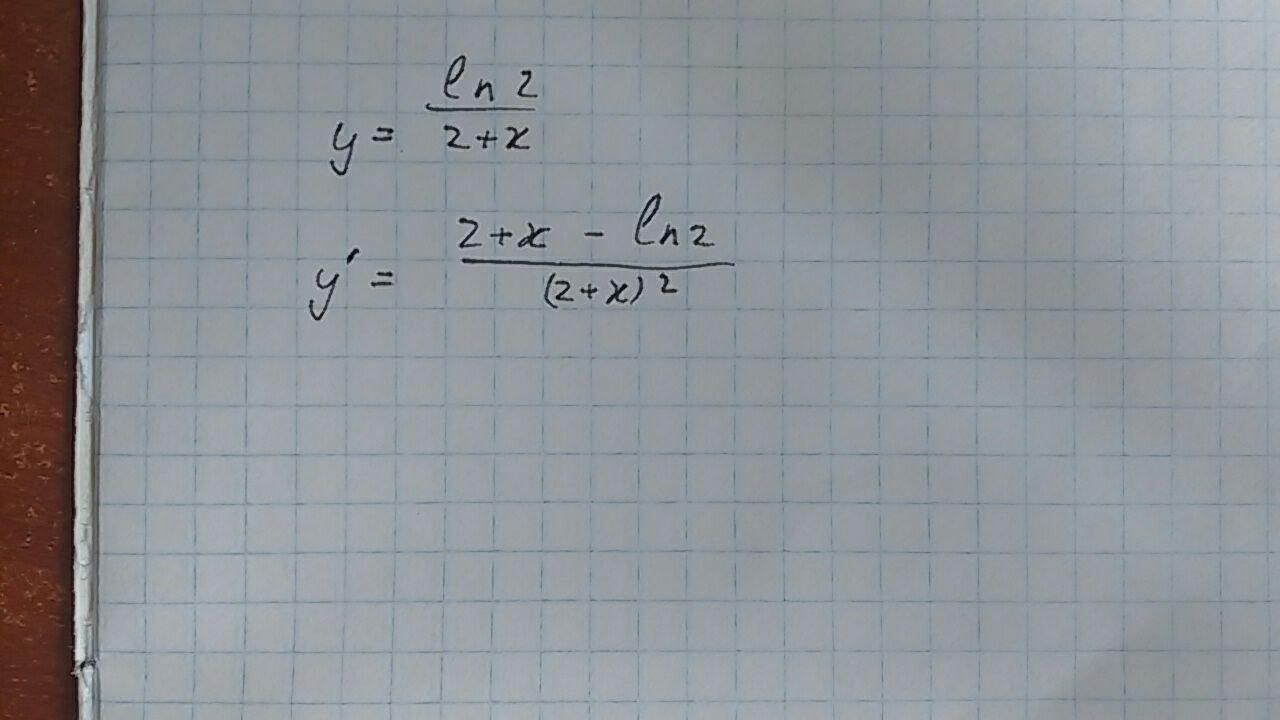 y = ln 2 / 2+x
y' = 2+x - ln 2 / (2+x)²